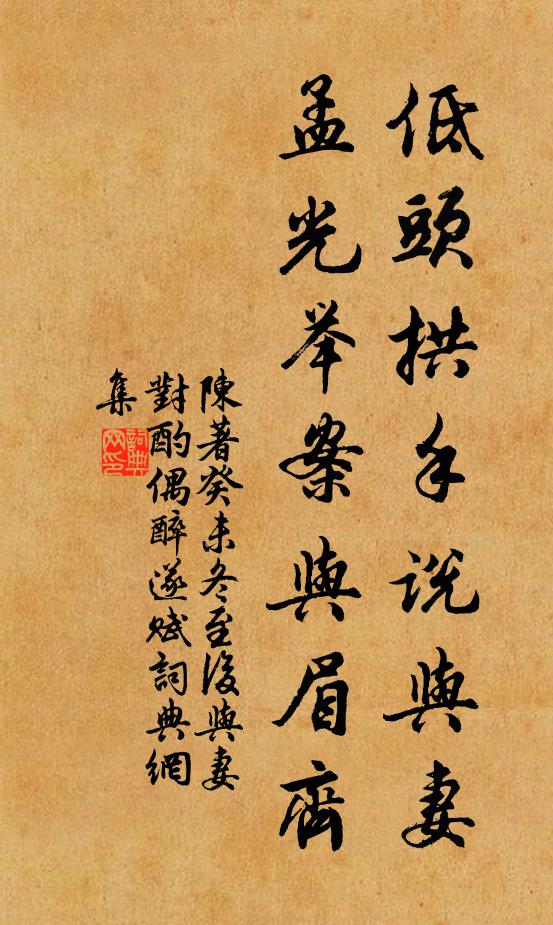 低頭拱手說與妻
孟光举案與眉齊
陳著癸未冬至後與妻
對酌偶醉遂賦詞典網
集
詞典网印